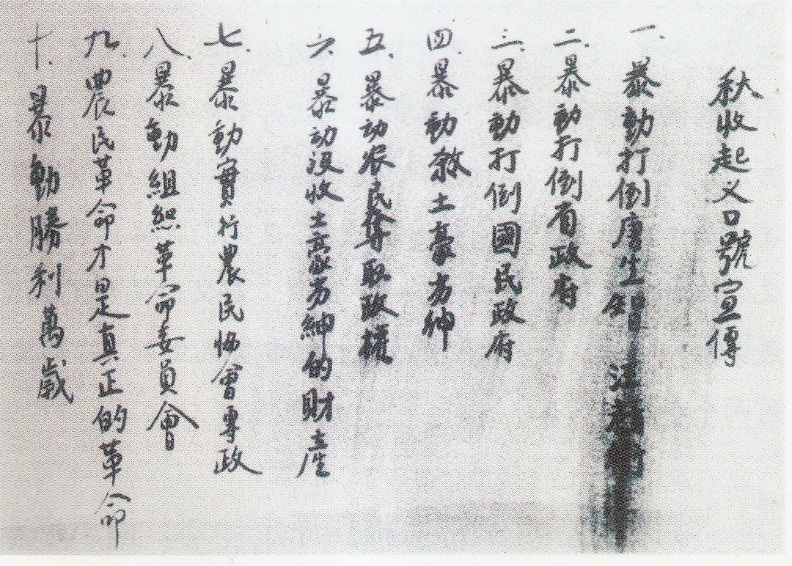 秋收起义口號宣傳
一、暴動打倒唐生智 汪精衛
二、暴動打倒省政府
三、暴動打倒國民政府
四、暴動殺土豪劣紳
五、暴动农民奪取政權
六、暴动没收土豪劣紳的財產
七、暴動實行農民協會專政
八、暴動組織革命委員會
九、農民革命才是真正的革命
十、暴動勝利萬歲